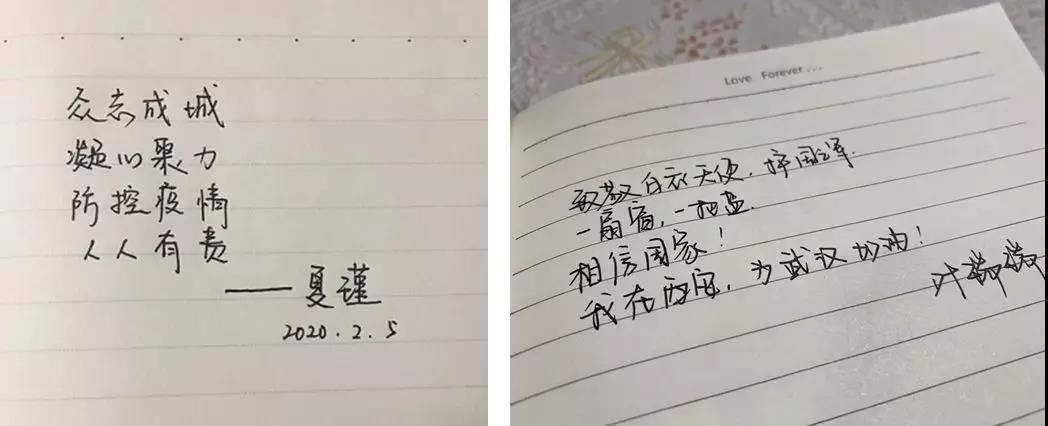 众志成城
凝心聚力
防控疫情
人人有责
——夏瑾
2020.2.5
Love Forever...
致敬白衣天使，
一扇窗，一把
相信国家！
我在西宁，为武汉加油！
叶